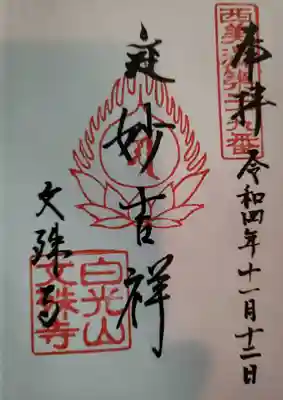 西美濃第
番
奉拝
令和四年十一月十二日
妙吉祥
文殊寺
白光山
文殊寺